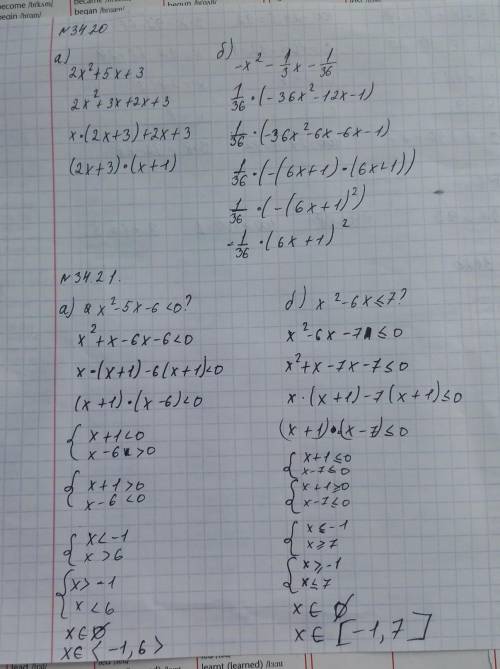 become /bɪkʌm/
begin /bɪgɪn/
began /bɪgæn/
№34.20
а)
2x²+5x+3
2x²+3x+2x+3
x·(2x+3)+2x+3
(2x+3)·(x+1)
б)
-x² - 1/3 x - 1/36
1/36 ·(-36x²-12x-1)
1/36 ·(-36x²-6x-6x-1)
1/36 ·(-(6x+1)·(6x+1))
1/36 ·(-(6x+1)²)
-1/36 ·(6x+1)²
№34.21.
а) x²-5x-6<0?
x²+x-6x-6<0
x·(x+1)-6(x+1)<0
(x+1)·(x-6)<0
{ x+1<0
x-6>0
{ x+1>0
x-6<0
{ x<-1
x>6
{ x>-1
x<6
x∈∅
x∈⟨-1,6⟩
б) x²-6x≤7?
x²-6x-7≤0
x²+x-7x-7≤0
x·(x+1)-7(x+1)≤0
(x+1)·(x-7)≤0
{ x+1≤0
x-7≤0
{ x+1≥0
x-7≤0
{ x≤-1
x≥7
{ x≥-1
x≤7
x∈∅
x∈[-1,7]
learnt (learned) /lɜːnt